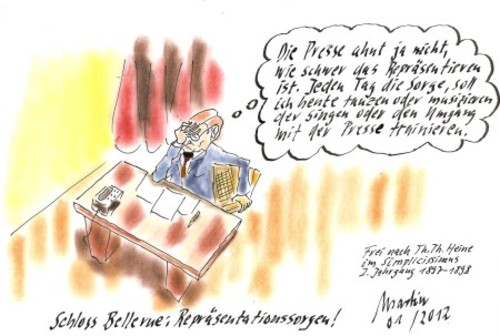 Die Presse ahnt ja nicht,
wie schwer das Repräsentieren
ist. Jeden Tag die Sorge, soll
ich heute tanzen oder musizieren
oder singen oder den Umgang
mit der Presse trainieren.
Frei nach Th. Th. Heine
im Simplicissimus
2. Jahrgang 1897-1898
Martin
01/2012
Schloss Bellevue: Repräsentationssorgen!